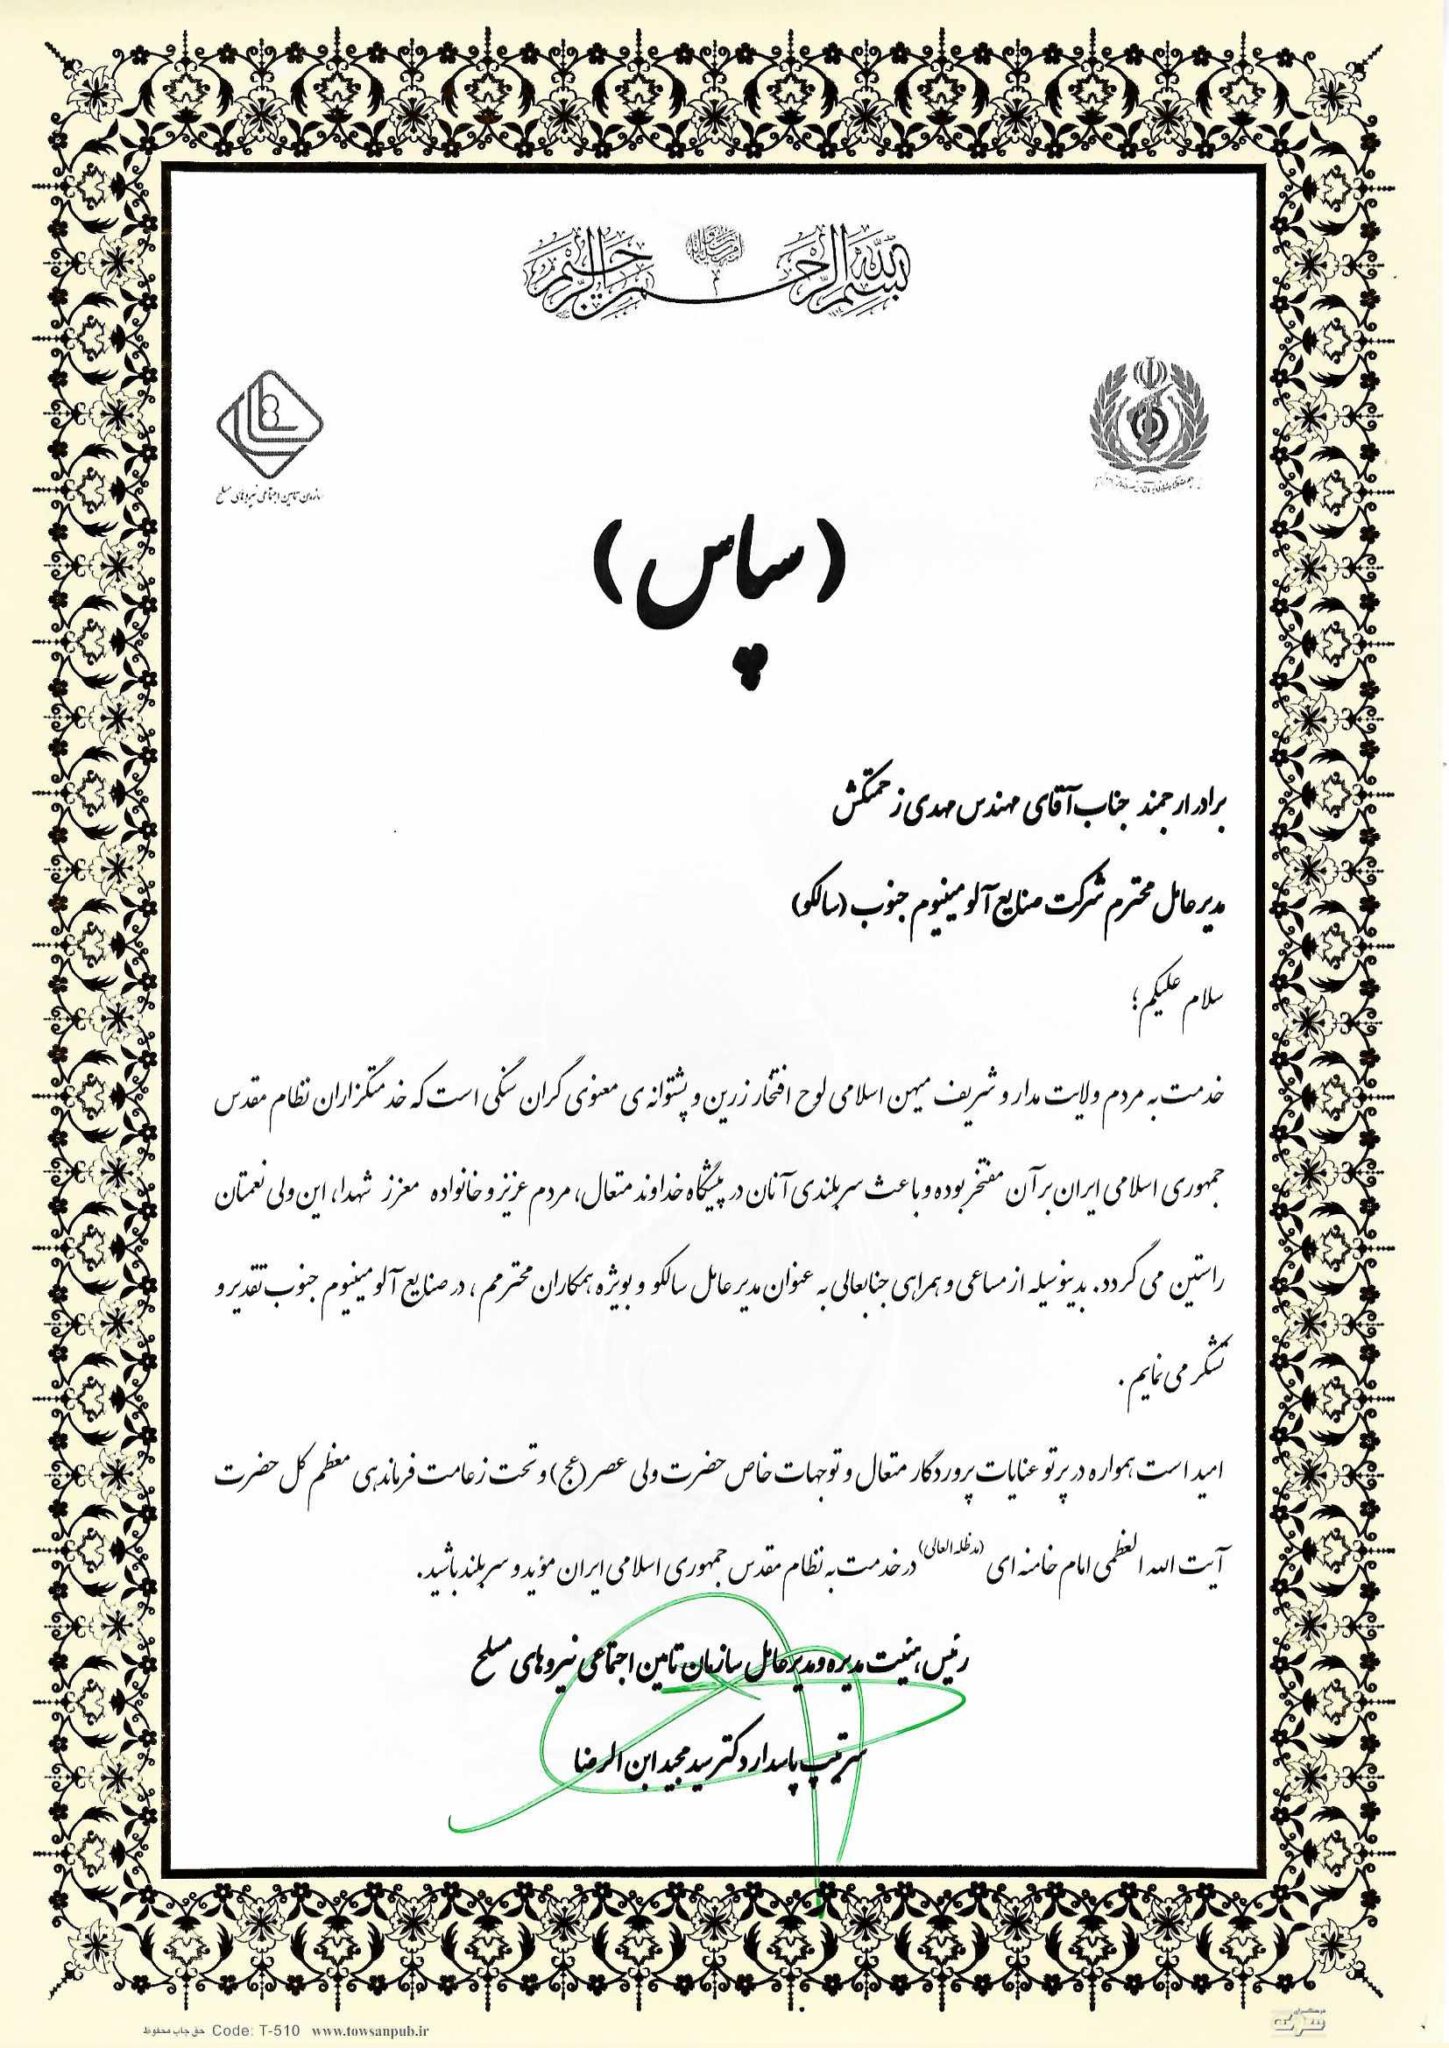 بسم الله الرحمن الرحیم
سازمان تامین اجتماعی نیروهای مسلح
(سپاس)
برادر ارجمند جناب آقای مهندس مهدی زحمتکش
مدیرعامل محترم شرکت صنایع آلومینیوم جنوب (سالکو)
سلام علیکم؛
خدمت به مردم ولایت مدار و شریف میهن اسلامی لوح افتخار زرین و پشتوانه ی معنوی گران سنگی است که خدمتگزاران نظام مقدس
جمهوری اسلامی ایران بر آن مفتخر بوده و باعث سربلندی آنان در پیشگاه خداوند متعال، مردم عزیز و خانواده معزز شهدا، این ولی نعمتان
راستین می گردد. بدینوسیله از مساعی و همراهی جنابعالی به عنوان مدیرعامل سالکو و بویژه همکاران محترمم، در صنایع آلومینیوم جنوب تقدیر و
تشکر می نمایم.
امید است همواره در پرتو عنایات پروردگار متعال و توجهات خاص حضرت ولی عصر (عج) و تحت زعامت فرماندهی معظم کل حضرت
آیت الله العظمی امام خامنه ای (مدظله العالی) در خدمت به نظام مقدس جمهوری اسلامی ایران موید و سربلند باشید.
رئیس هیئت مدیره و مدیرعامل سازمان تامین اجتماعی نیروهای مسلح
سرتیپ پاسدار دکتر سید مجید ابن الرضا
حق چاپ محفوظ Code: T-510 www.towsanpub.ir